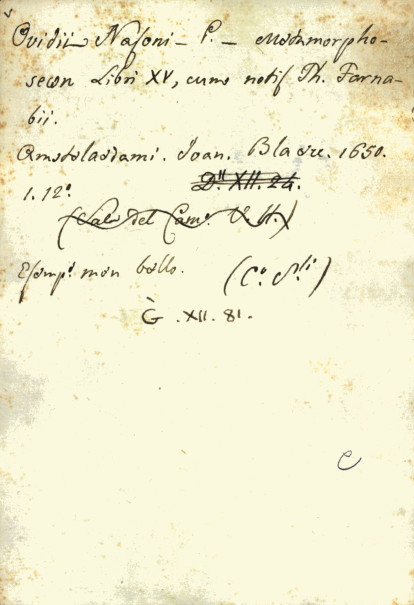 Ovidii Nasoni - P. - Metamorpho-
seon Libri XV, cums notis Th. Farna-
bii.
Amstelaedami. Joan. Blaeu. 1650.
1. 12º
D. XII. 24.
(Sala del Cam. V. H.)
Esemp.e non bello. (Cº. )
G. XII. 81.
e